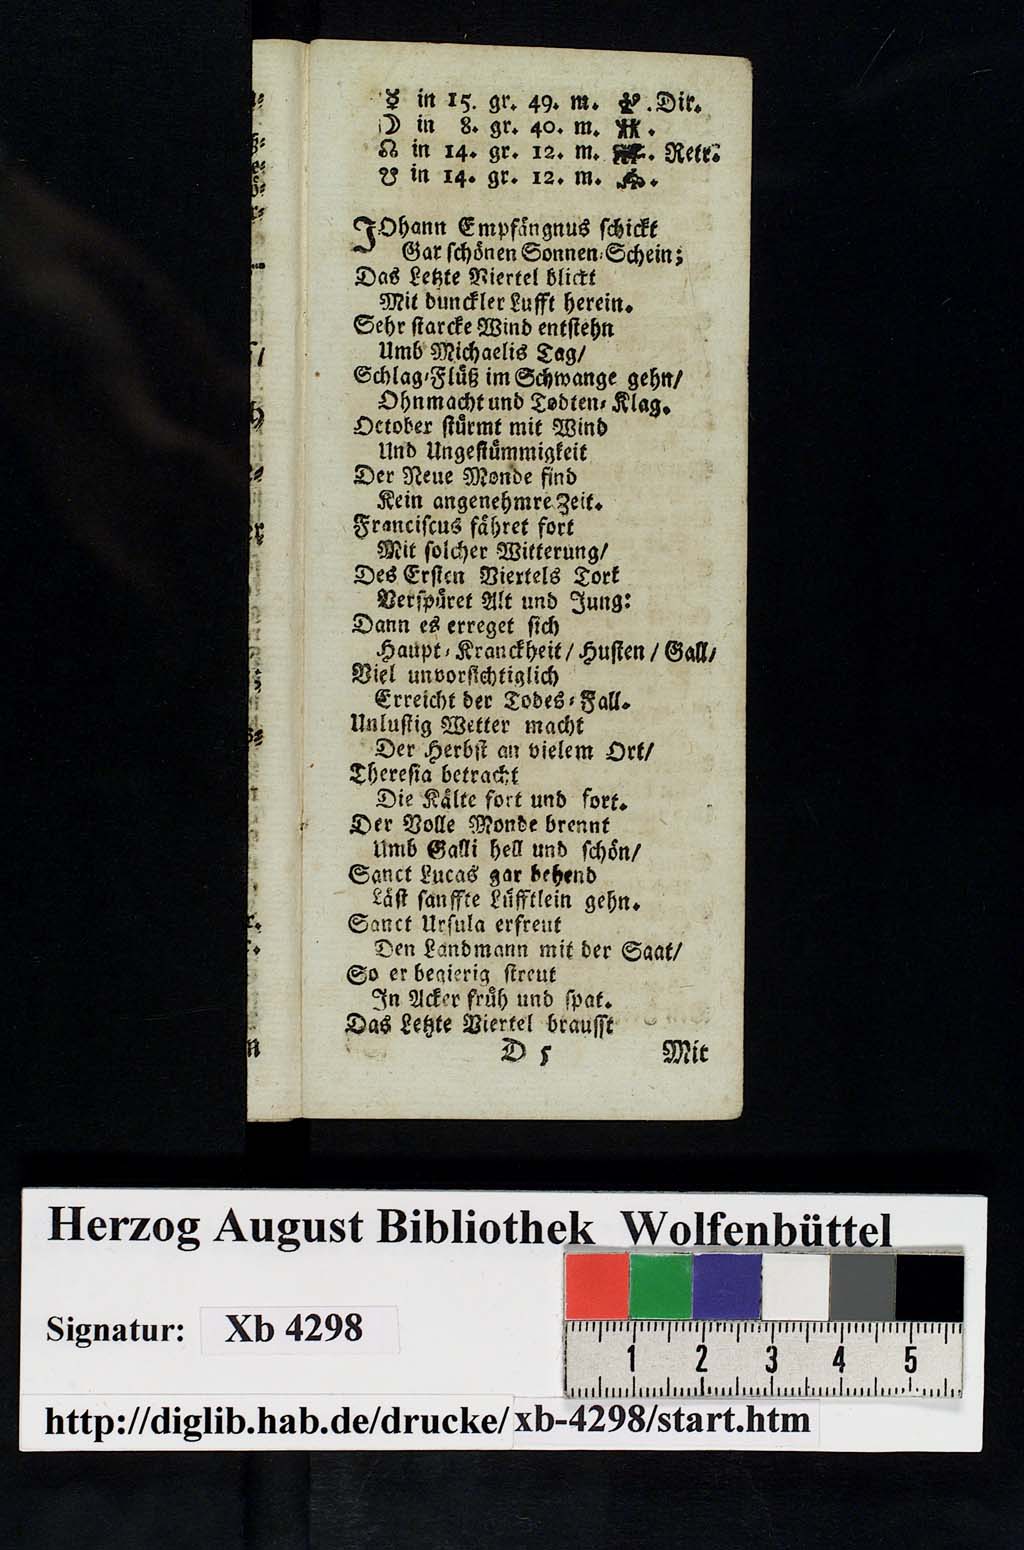 ☿ in 15. gr. 49. m. . Dir.
☽ in 8. gr. 40. m. .
☊ in 14. gr. 12. m. . Retr.
☋ in 14. gr. 12. m. .
JOhann Empfängnus schickt
Gar schönen Sonnen-Schein;
Das Letzte Viertel blickt
Mit dunckler Lufft herein.
Sehr starcke Wind entstehn
Umb Michaelis Tag/
Schlag-Flüß im Schwange gehn/
Ohnmacht und Todten-Klag.
October stürmt mit Wind
Und Ungestümmigkeit
Der Neue Monde find
Kein angenehmre Zeit.
Franciscus fähret fort
Mit solcher Witterung/
Des Ersten Viertels Tort
Verspüret Alt und Jung:
Dann es erreget sich
Haupt-Kranckheit/ Husten/ Gall/
Viel unvorsichtiglich
Erreicht der Todes-Fall.
Unlustig Wetter macht
Der Herbst an vielem Ort/
Theresia betracht
Die Kälte fort und fort.
Der Volle Monde brennt
Umb Galli hell und schön/
Sanct Lucas gar behend
Läst sanffte Lüfftlein gehn.
Sanct Ursula erfreut
Den Landmann mit der Saat/
So er begierig streut
In Acker früh und spat.
Das Letzte Viertel brausst
D 5 Mit
Herzog August Bibliothek Wolfenbüttel
Signatur: Xb 4298
1 2 3 4 5
http://diglib.hab.de/drucke/xb-4298/start.htm